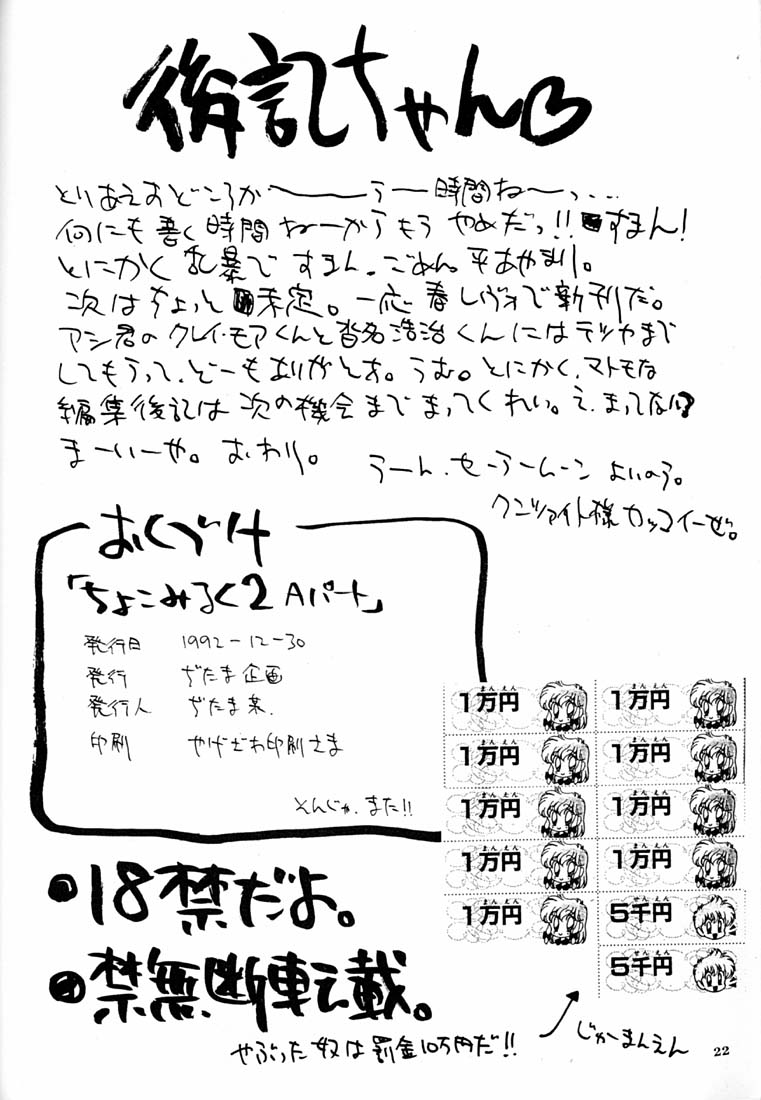 後記ちゃん♡
とりあえずどころか〜〜〜うー時間ねーっ...
何にも書く時間ねーからもうやめだっ!!すまん!
とにかく乱暴ですまん。ごめん。平あやまり。
次はちょっと未定。一応春レヴォで新刊だ。
アシ君のクレイ・モアくんと沓名浩治くんにはテツヤまで
してもらって、どーもありがとお。うむ。とにかく、マトモな
編集後記は次の機会までまってくれい。え、まってない?
まーいーや。おわり。
うーん、セーラームーンよいのう。
クンツァイト様カッコイーぜ。
おくづけ
「ちょこみるく2 Aパート」
発行日 1992-12-30
発行 ぢたま企画
発行人 ぢたま某.
印刷 やげざわ印刷さま
そんじゃ、また!!
1万円 まんえん
1万円 まんえん
1万円 まんえん
1万円 まんえん
1万円 まんえん
1万円 まんえん
1万円 まんえん
1万円 まんえん
1万円 まんえん
5千円 せんえん
5千円 せんえん
18禁だよ。
禁無断転載。
やぶった奴は罰金10万円だ!!
じゅーまんえん
22